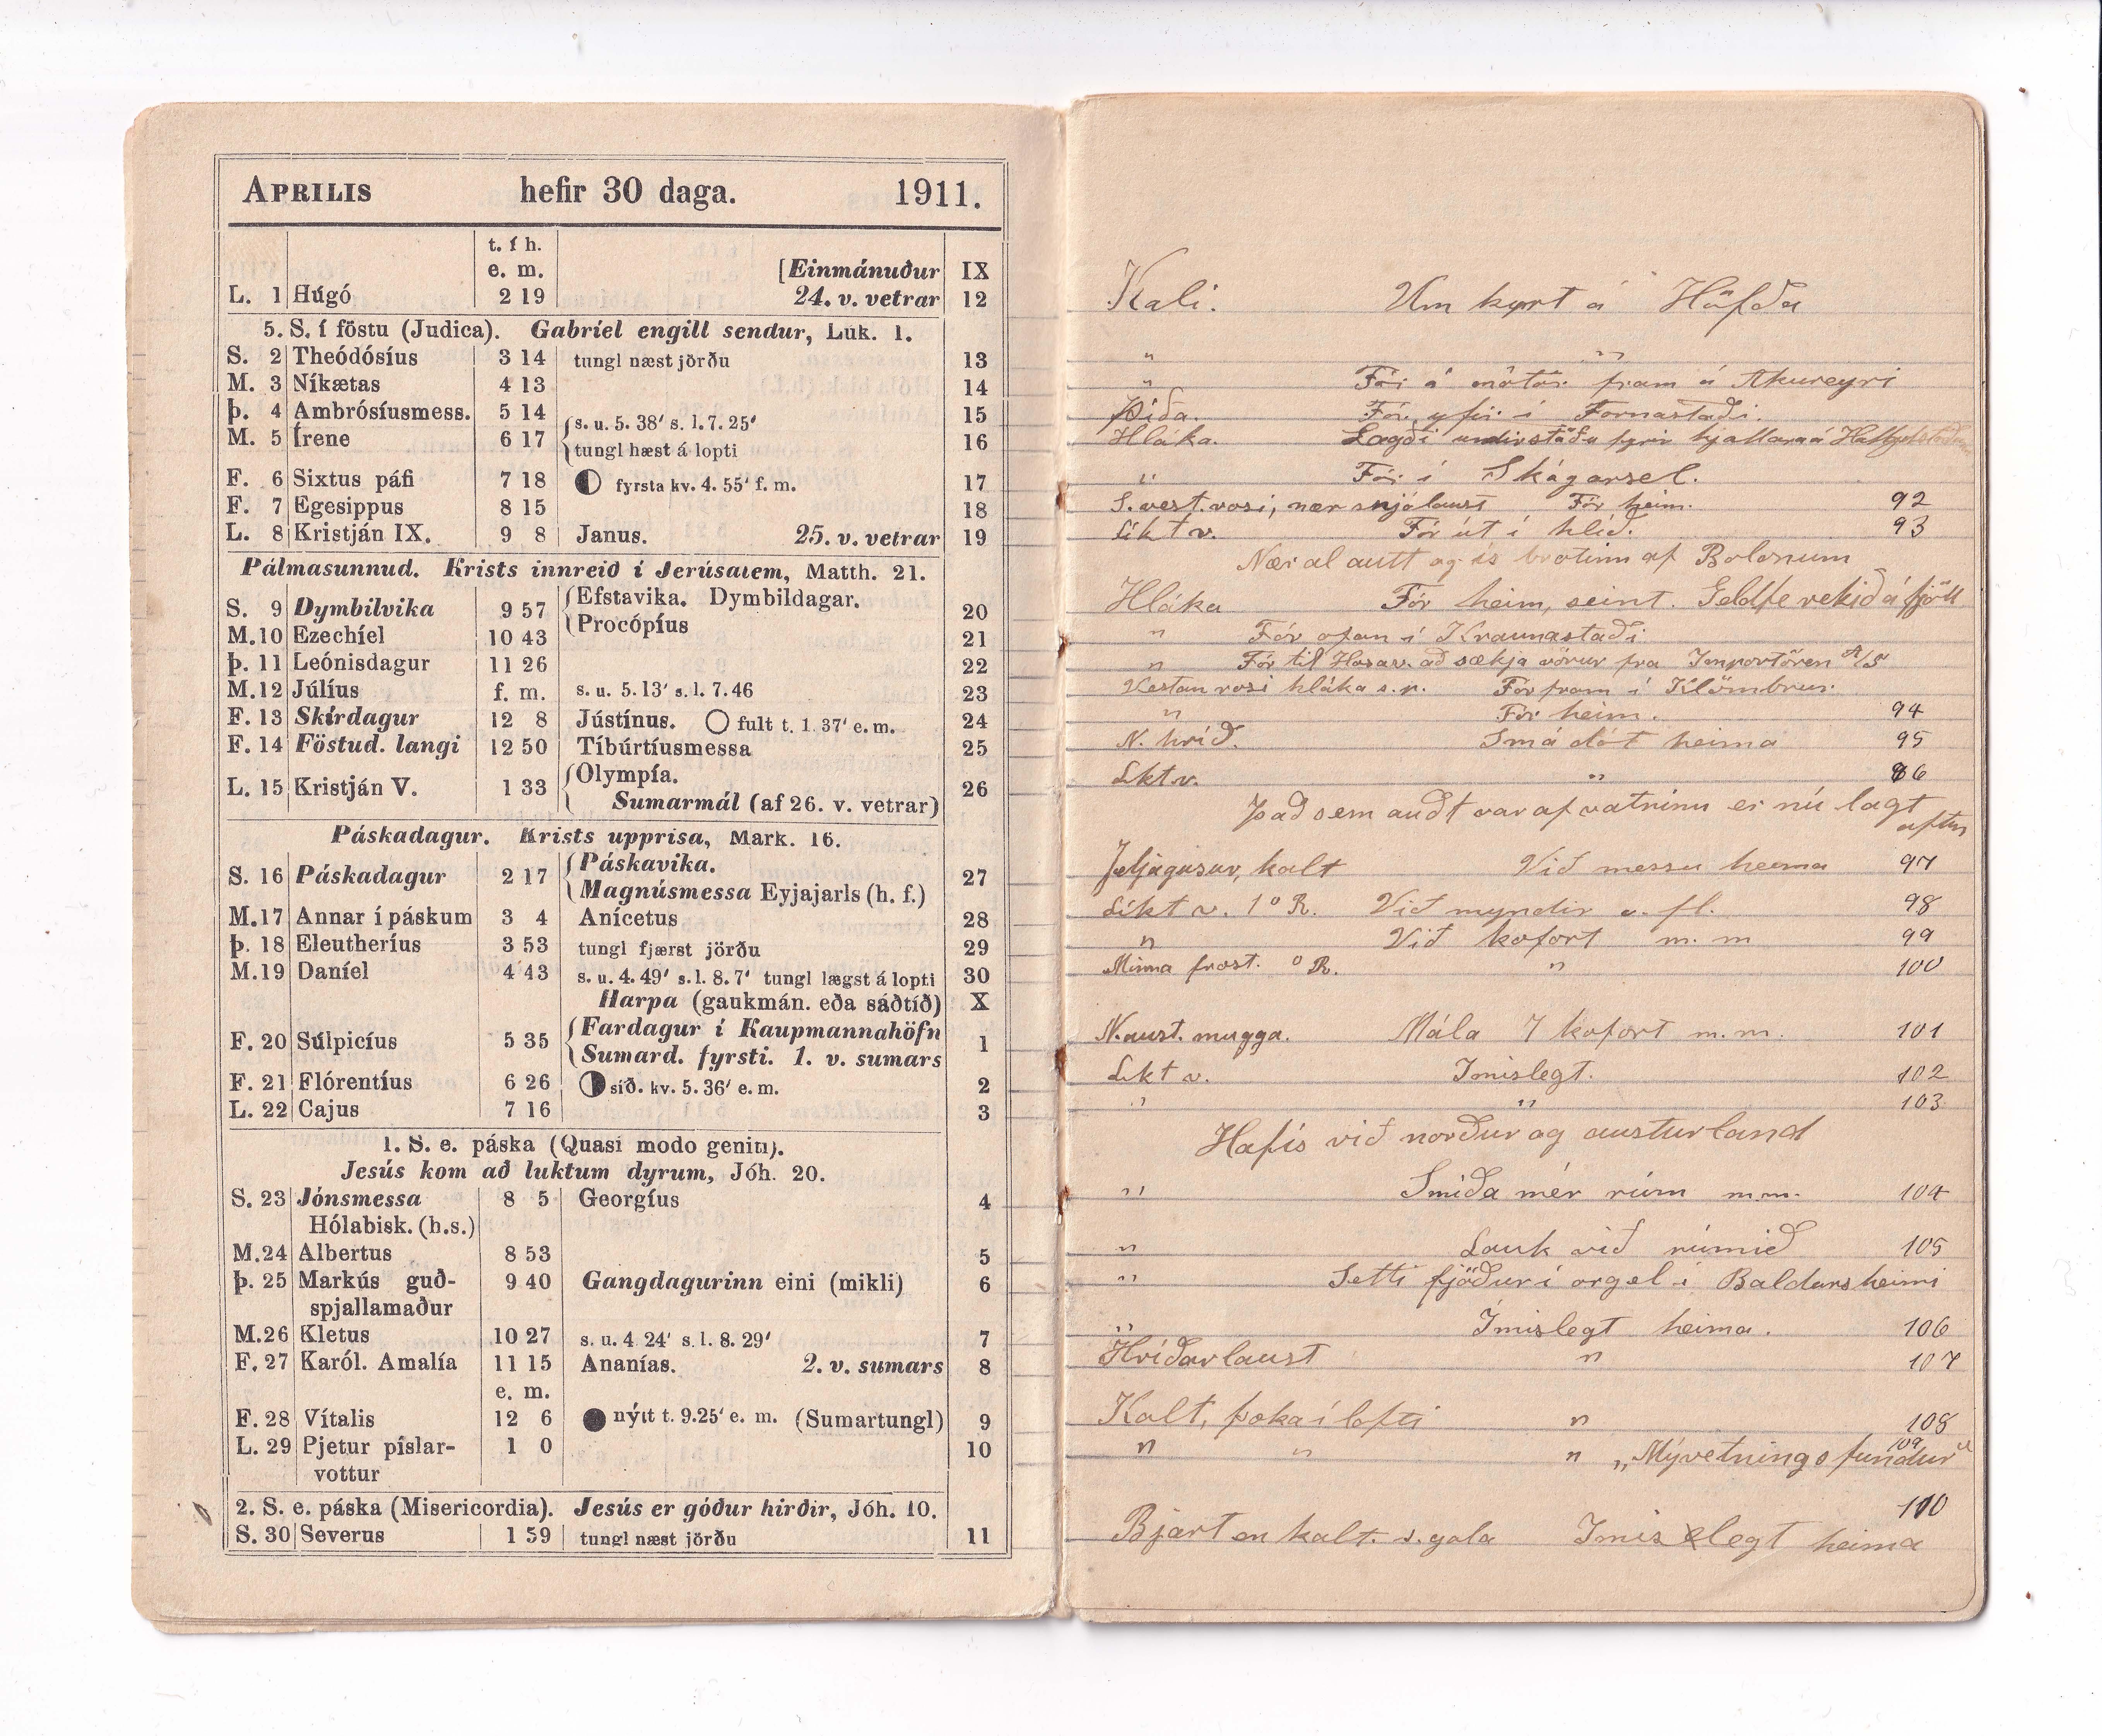 APRILIS hefir 30 daga. 1911.
t. í h.
e. m. [Einmánuður IX
L. 1 Húgó 2 19 24. v. vetrar 12
5. S. í föstu (Judica). Gabríel engill sendur, Lúk. 1.
S. 2 Theódósíus 3 14 tungl næst jörðu 13
M. 3 Níkætas 4 13 14
Þ. 4 Ambrósíusmess. 5 14 s. u. 5. 38′ s. l. 7. 25′ 15
M. 5 Írene 6 17 tungl hæst á lopti 16
F. 6 Sixtus páfi 7 18 fyrsta kv. 4. 55′ f. m. 17
F. 7 Egesippus 8 15 18
L. 8 Kristján IX. 9 8 Janus. 25. v. vetrar 19
Pálmasunnud. Krists innreið í Jerúsalem, Matth. 21.
S. 9 Dymbilvika 9 57 Efstavika. Dymbildagar. 20
Procópíus
M. 10 Ezechíel 10 43 21
Þ. 11 Leónisdagur 11 26 22
M. 12 Júlíus f. m. s. u. 5. 13′ s. l. 7. 46 23
F. 13 Skírdagur 12 8 Jústínus. fult t. 1. 37′ e. m. 24
F. 14 Föstud. langi 12 50 Tíbúrtíusmessa 25
L. 15 Kristján V. 1 33 Olympía. 26
Sumarmál (af 26. v. vetrar)
Páskadagur. Krists upprisa, Mark. 16.
S. 16 Páskadagur 2 17 Páskavika. 27
Magnúsmessa Eyjajarls (h. f.)
M. 17 Annar í páskum 3 4 Anícetus 28
Þ. 18 Eleutheríus 3 53 tungl fjærst jörðu 29
M. 19 Daníel 4 43 s. u. 4. 49′ s. l. 8. 7′ tungl lægst á lopti 30
Harpa (gaukmán. eða sáðtíð) X
F. 20 Súlpicíus 5 35 Fardagur í Kaupmannahöfn 1
Sumard. fyrsti. 1. v. sumars
F. 21 Flórentíus 6 26 síð. kv. 5. 36′ e. m. 2
L. 22 Cajus 7 16 3
1. S. e. páska (Quasi modo geniti).
Jesús kom að luktum dyrum, Jóh. 20.
S. 23 Jónsmessa 8 5 Georgíus 4
Hólabisk. (h. s.)
M. 24 Albertus 8 53 5
Þ. 25 Markús guð- 9 40 Gangdagurinn eini (mikli) 6
spjallamaður
M. 26 Kletus 10 27 s. u. 4 24′ s. l. 8. 29′ 7
F. 27 Karól. Amalía 11 15 Ananías. 2. v. sumars 8
e. m.
F. 28 Vítalis 12 6 nýtt t. 9. 25′ e. m. (Sumartungl) 9
L. 29 Pjetur píslar- 1 0 10
vottur
2. S. e. páska (Misericordia). Jesús er góður hirðir, Jóh. 10.
S. 30 Severus 1 59 tungl næst jörðu 11
Kali. Um kyrt á Höfða
" "
" Fór á mótór fram á Akureyri
Þíða. Fór yfir í Fornastaði.
Hláka. Lagði undirstöðu fyrir kjallara á
" Fór í Skógarsel.
S. vest. rosi, nær snjólaust Fór heim. 92
Líkt v. Fór út í hlíð. 93
Nær al autt og ís brotinn af Bolonum
Hláka Fór heim, seint. Geldfe rekið á fjöll
" Fór ofan í Kraunastaði
" Fór til Húsav. að sækja vörur fra Importören A/S
Vestan rosi hláka s. n. Fór fram í Klömbrur.
" Fór heim. 94
N. hríð. Smá dót heima 95
Líkt v. " 96
Það sem auðt var af vatninu er nú lagt
aftur
Jeljagusur, kalt Við messu heima 97
Líkt v. 1° R. Við myndir o. fl. 98
" Við kofort m. m 99
Minna frost. ° R. " 100
N. aust. mugga. Mála 7 kofort m. m. 101
Líkt v. Ímislegt. 102
" " 103
Hafís við norður og austurland
" Smíða mér rúm m. m. 104
" Lauk við rúmið 105
" Setti fjöður í orgel í Baldursheimi
" Ímislegt heima. 106
Hríðarlaust " 107
Kalt, þoka í lofti " 108
" " " „Mývetningsfundur“ 109
110
Bjart en kalt. s. gola Ímislegt heima